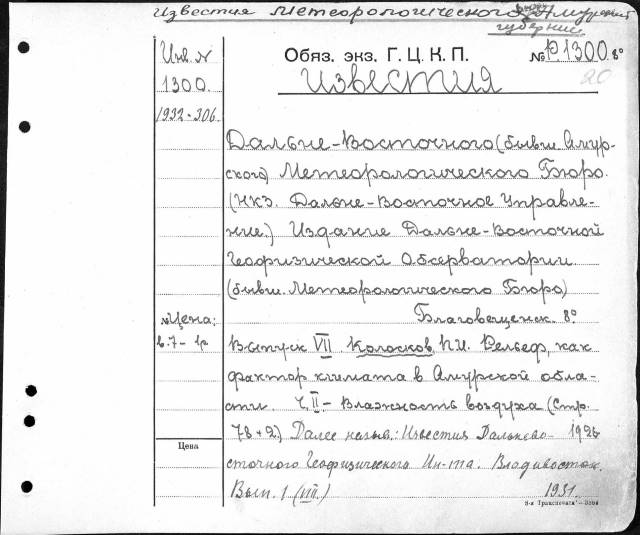 Известия Метеорологического Бюро Амурской
губернии
Инв. №
1300.
1932-306
Обяз. экз. Г. Ц. К. П.
№ Р1300 8°
20
Известия
Дальне-Восточного (бывш. Амур-
ского) Метеорологического Бюро.
(НКЗ. Дальне-Восточное Управле-
ние.) Издание Дальне-Восточной
Геофизической Обсерватории.
(бывш. Метеорологического Бюро)
Благовещенск. 8°
Цена:
в.7-1р
Выпуск VII. Колосков, П.И. Рельеф, как
фактор климата в Амурской обла-
сти. Ч. II - Влажность воздуха (Стр.
78+2) Далее назыв.: Известия Дальнево- 1925
Цена
сточного Геофизического Ин-та. Владивосток.
Вып. 1 (VIII.) 1931.
8-я Транспечати